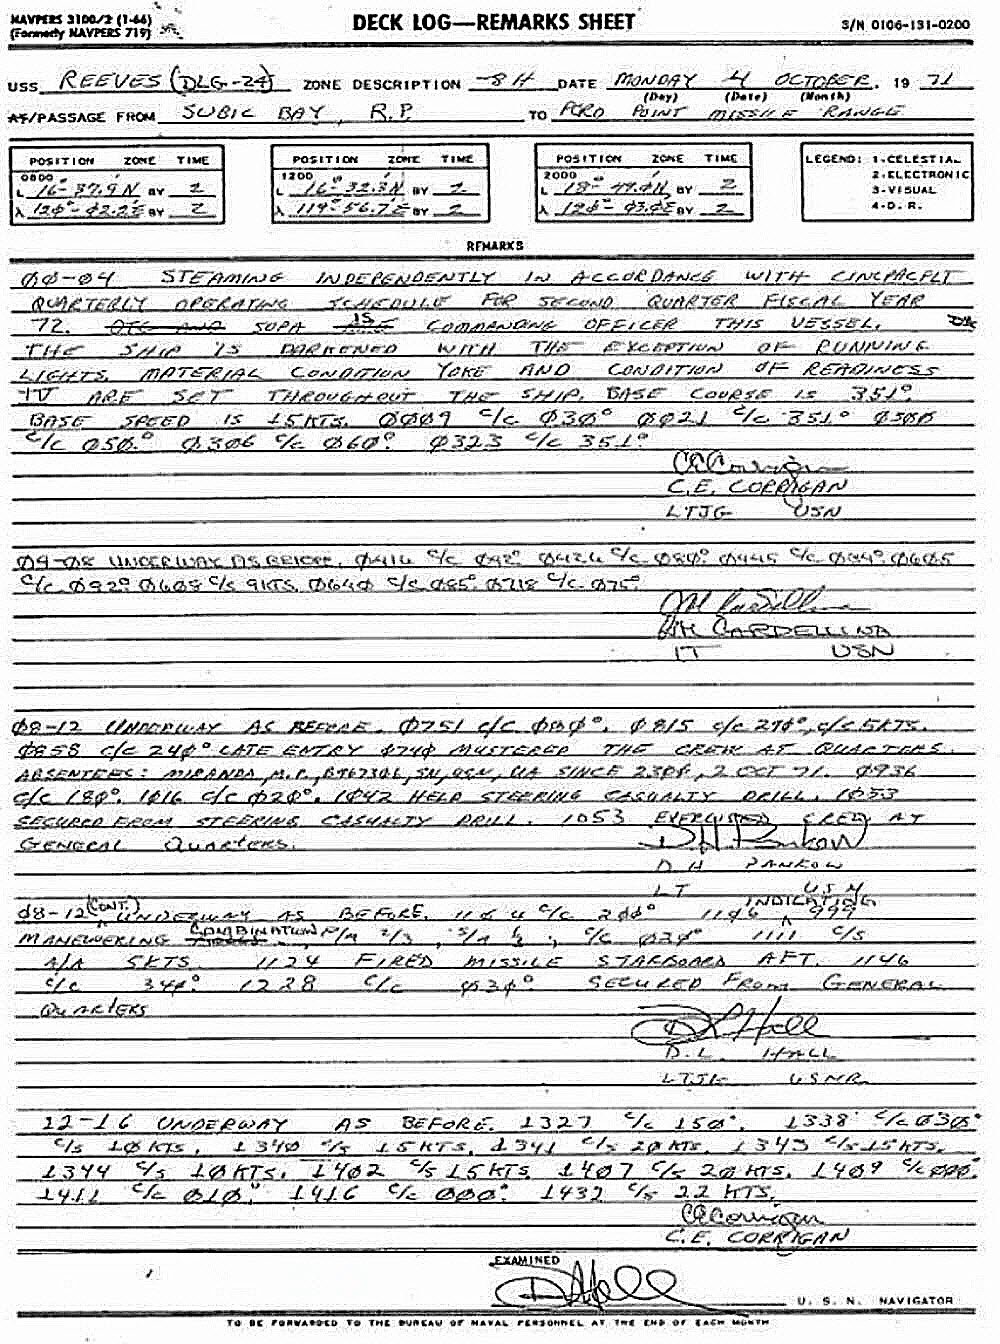 NAVPERS 3100/2 (1-66)
(Formerly NAVPERS 719)
DECK LOG—REMARKS SHEET
S/N 0106-131-0200
USS REEVES (DLG-24) ZONE DESCRIPTION -8H DATE MONDAY 4 OCTOBER, 19 71
(Day) (Date) (Month)
AT/PASSAGE FROM SUBIC BAY, R.P. TO PORO POINT MISSILE RANGE
POSITION ZONE TIME
0800
L 16°-37.9N BY 2
λ 120°-02.2E BY 2
POSITION ZONE TIME
1200
L 16°-32.3N BY 2
λ 119°-56.7E BY 2
POSITION ZONE TIME
2000
L BY 2
λ BY 2
LEGEND: 1-CELESTIAL
2-ELECTRONIC
3-VISUAL
4-D. R.
REMARKS
00-04 STEAMING INDEPENDENTLY IN ACCORDANCE WITH CINCPACFLT
QUARTERLY OPERATING SCHEDULE FOR SECOND QUARTER FISCAL YEAR
72. OTC AND SOPA IS COMMANDING OFFICER THIS VESSEL.
THE SHIP IS DARKENED WITH THE EXCEPTION OF RUNNING
LIGHTS. MATERIAL CONDITION YOKE AND CONDITION OF READINESS
IV ARE SET THROUGHOUT THE SHIP. BASE COURSE IS 351°.
BASE SPEED IS 15KTS. 0009 C/C 030° 0021 C/C 351° 0300
C/C 050° 0306 C/C 060° 0323 C/C 351°
C.E. CORRIGAN
LTJG USN
04-08 UNDERWAY AS BEFORE. 0414 C/C 042° 0424 C/C 080° 0445 C/C 0605
C/C 092° 0608 C/S 9KTS. 0640 C/C 085° 0718 C/C 075°
CARDELLINA
LT USN
08-12 UNDERWAY AS BEFORE. 0751 C/C 000°. 0815 C/C 270°, C/C 5KTS.
0858 C/C 240° LATE ENTRY 0740 MUSTERED THE CREW AT QUARTERS.
ABSENTEES: MIRANDA, SN, USN, UA SINCE 2 OCT 71. 0936
C/C 180°. 1016 C/C 020°. 1042 HELD STEERING CASUALTY DRILL. 1053
SECURED FROM STEERING CASUALTY DRILL. 1053 EXERCISED CREW AT
GENERAL QUARTERS.
D H PANKOW
LT USN
08-12 (CONT.) UNDERWAY AS BEFORE. 1104 C/C 200° 1106 INDICATING 999
MANEUVERING COMBINATION P/A 2/3, S/A 1/3, C/C 020° 1111 C/S
A/A 5KTS. 1124 FIRED MISSILE STARBOARD AFT. 1146
C/C 340°. 1228 C/C 030°. SECURED FROM GENERAL
QUARTERS
D.L. HALL
LTJG USNR
12-16 UNDERWAY AS BEFORE. 1327 C/C 150°. 1338 C/C 030°
C/S 10KTS, 1340 C/S 15KTS, 1341 C/S 20KTS, 1343 C/S 15KTS,
1344 C/S 10KTS. 1402 C/S 15KTS 1407 C/S 20KTS. 1409 C/C 000°
1411 C/C 010° 1416 C/C 000° 1432 C/S 22 KTS.
C.E. CORRIGAN
EXAMINED
U. S. N. NAVIGATOR
TO BE FORWARDED TO THE BUREAU OF NAVAL PERSONNEL AT THE END OF EACH MONTH